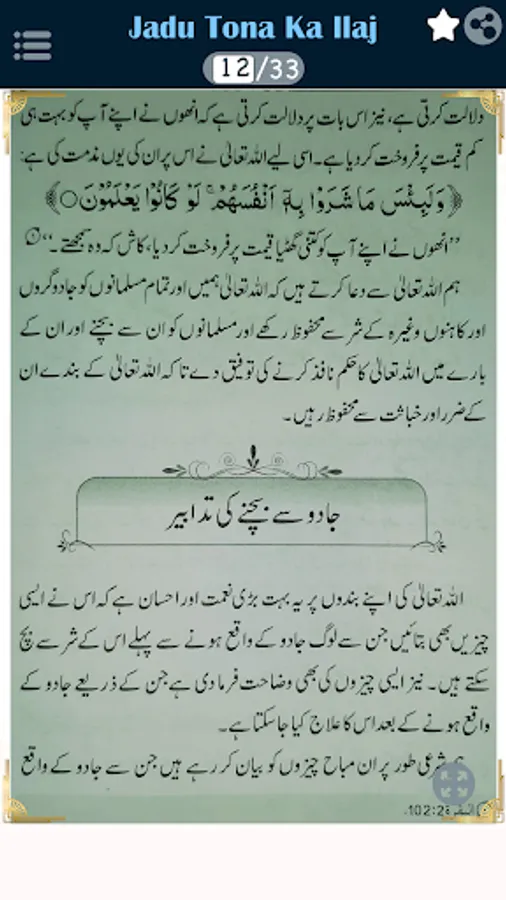 Jadu Tona Ka Ilaj
12/33
دلالت کرتی ہے، نیز اس بات پر دلالت کرتی ہے کہ انھوں نے اپنے آپ کو بہت ہی
کم قیمت پر فروخت کر دیا ہے۔ اسی لیے اللہ تعالیٰ نے اس پر ان کی یوں مذمت کی ہے:
﴿وَلَبِئْسَ مَا شَرَوْا بِهٖٓ اَنْفُسَهُمْ ۚ لَوْ كَانُوْا يَعْلَمُوْنَ○﴾
”انھوں نے اپنے آپ کو کتنی گھٹیا قیمت پر فروخت کر دیا، کاش کہ وہ سمجھتے۔“①
ہم اللہ تعالیٰ سے دعا کرتے ہیں کہ اللہ تعالیٰ ہمیں اور تمام مسلمانوں کو جادوگروں
اور کاہنوں وغیرہ کے شر سے محفوظ رکھے اور مسلمانوں کو ان سے بچنے اور ان کے
بارے میں اللہ تعالیٰ کا حکم نافذ کرنے کی توفیق دے تاکہ اللہ تعالیٰ کے بندے ان
کے ضرر اور خباثت سے محفوظ رہیں۔
جادو سے بچنے کی تدابیر
اللہ تعالیٰ کی اپنے بندوں پر یہ بہت بڑی نعمت اور احسان ہے کہ اس نے ایسی
چیزیں بھی بتائیں جن سے لوگ جادو کے واقع ہونے سے پہلے اس کے شر سے بچ
سکتے ہیں۔ نیز ایسی چیزوں کی بھی وضاحت فرما دی ہے جن کے ذریعے جادو کے
واقع ہونے کے بعد اس کا علاج کیا جا سکتا ہے۔
شرعی طور پر ان مباح چیزوں کو بیان کر رہے ہیں جن سے جادو کے واقع
البقرة 2:102.